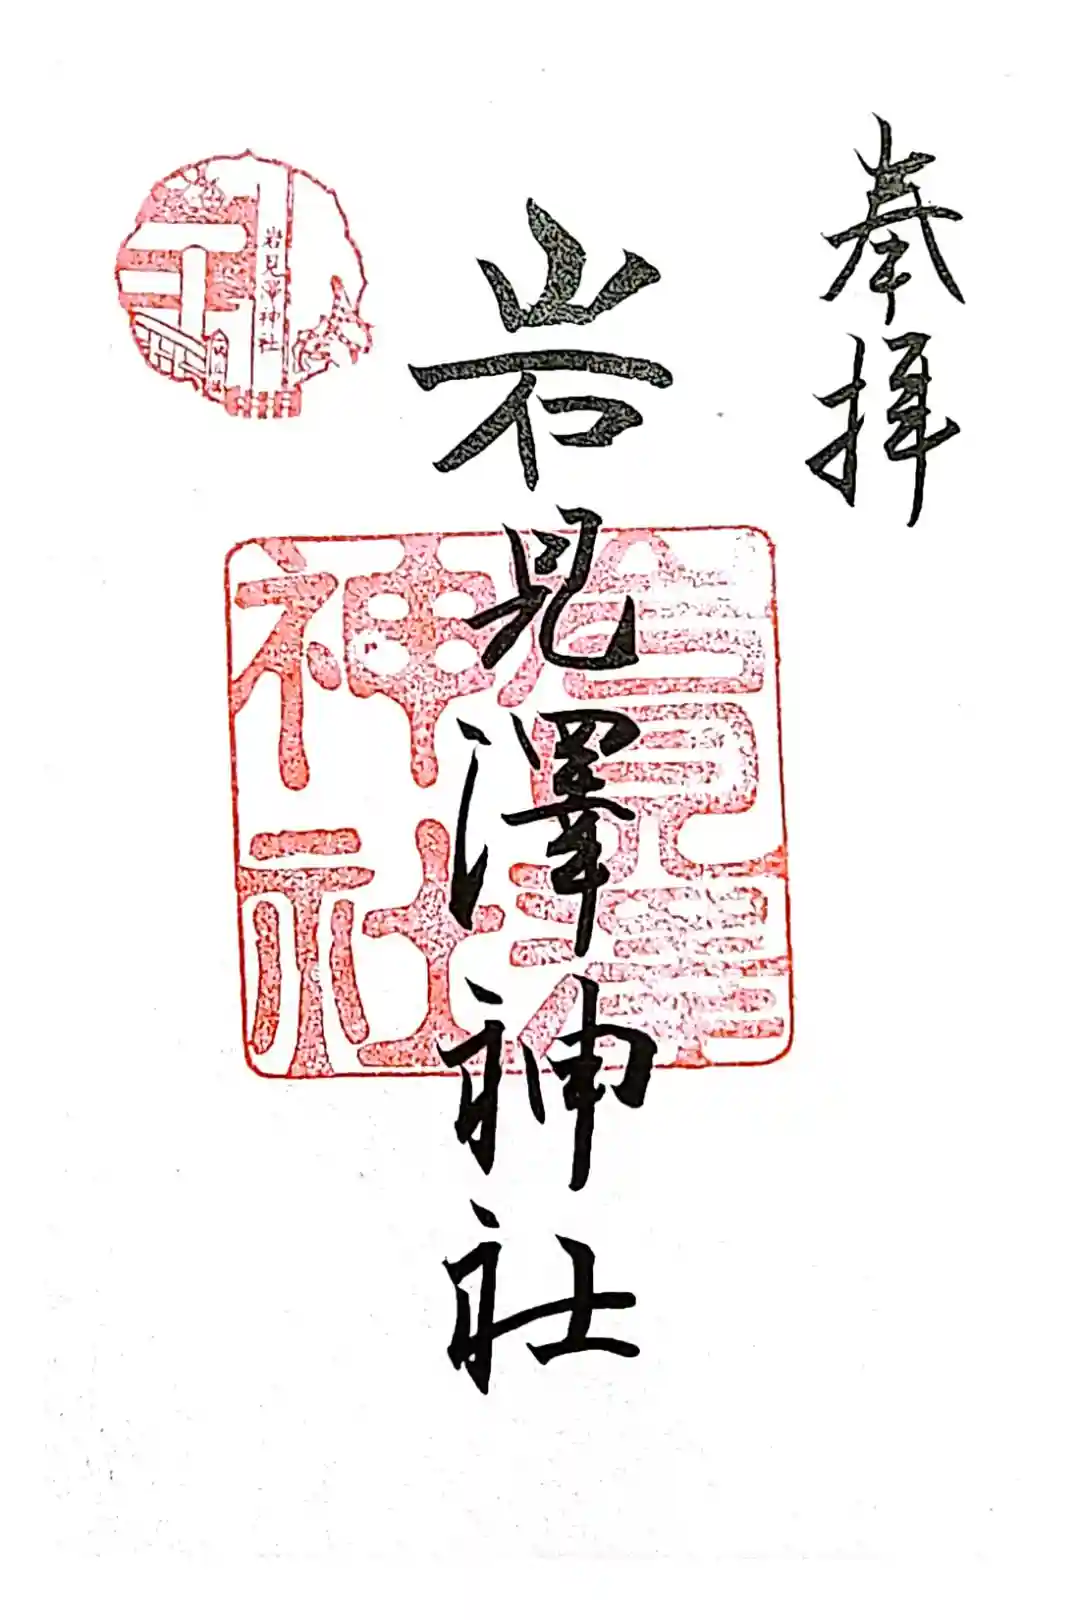 奉拝
岩見澤神社
岩見澤神社
岩見澤神社